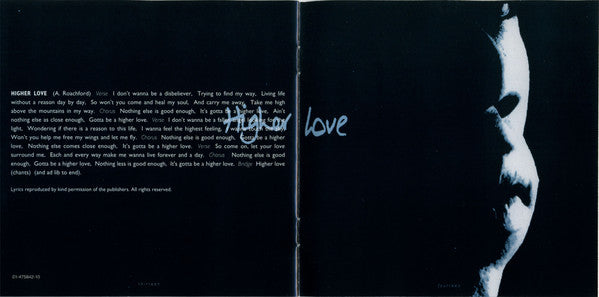 HIGHER LOVE (A. Roachford) Verse I don't wanna be a disbeliever, Trying to find my way, Living life
without a reason day by day, So won't you come and heal my soul, And carry me away, Take me high
above the mountains in my way. Chorus Nothing else is good enough, It's gotta be a higher love, Ain't
nothing else as close enough, Gotta be a higher love. Verse I don't wanna be a
light, Wondering if there is a reason to this life. I wanna feel the highest feeling, I
Won't you help me free my wings and let me fly. Chorus Nothing else is good enough, Gotta be a higher
love, Nothing else comes close enough, It's gotta be a higher love. Verse So come on, let your love
surround me, Each and every way make me wanna live forever and a day. Chorus Nothing else is good
enough, Gotta be a higher love, Nothing less is good enough, It's gotta be a higher love. Bridge Higher love
(chants) (and ad lib to end).
Higher Love
Lyrics reproduced by kind permission of the publishers. All rights reserved.
01-475842-10
thirteen
fourteen